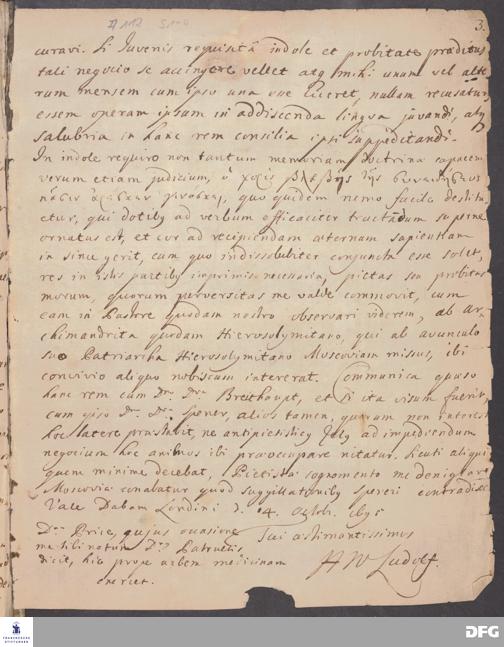 3.
curavi. Si Juvenis requisitâ indole et probitate praeditus
tali negocio se accingere vellet atq mihi unum vel alte
rum mensem cum ipso una esse liceret, nullam recusaturus
essem operam ipsum in addiscenda lingva juvandi, atq
salubria in hanc rem consilia ipsi suppeditandi.
In indole requiro non tantum memoriam doctrinae capacem
verum etiam judicium, ὁ χωρὶς βλάβης τῆς συνειδήσεως
quo quidem nemo facile destitu
etur, qui dotibq ad verbum efficaciter tractandum superne
ornatus est, et cor ad recipiendam aeternam sapientiam
in sinu gerit, cum quo indissolubiter conjuncta esse solet,
res in istis partibq imprimis necessaria, pietas seu probitas
morum, quorum perversitas me valde commovit, cum
eam in Pastore quodam nostro observari viderem, ab Ar-
chimandrita quodam Hierosolymitano, qui ab avunculo
suo Patriarcha Hierosolymitano Moscoviam missus, ibi
convivio aliquo nobiscum intererat. Communica quaeso
hanc rem cum Dno. Dre. Breithaupt, et si ita visum fuerit,
cum ipso Dno. Dre. Spener, alios tamen, quorum non interest
hoc latere praestabit, ne antipietisticq Zelq ad impediendum
negocium hoc animos ibi praeoccupare nitatur. Sicuti aliqui
quem minime decebat, Pietistae cognomento me denigrare
Moscoviae conabatur quod suggillationibq Speneri contradixe
Vale Dabam Londini d. 4. Octobr. 1695
Dn. Price, qujus occasione Tui aestimantissimus
me tibi notum Dn. Patruelis
dicit, hic prope urbem medicinam HWLudolf.
exercet.
FRANCKESCHE
STIFTUNGEN
DFG